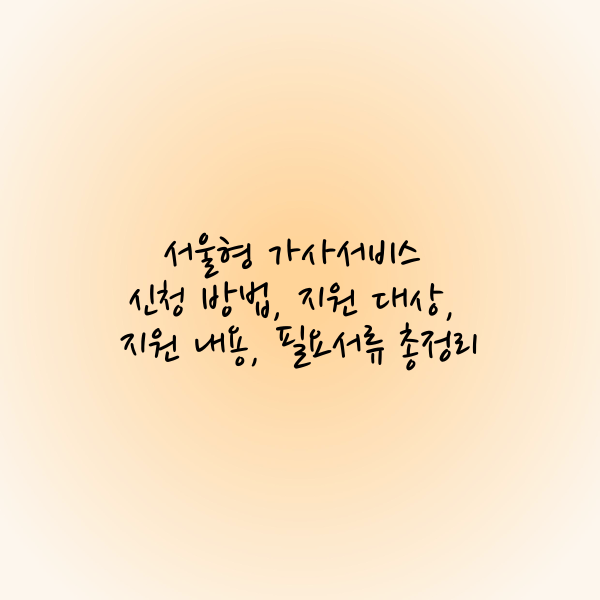 서울형 가사서비스
신청 방법, 지원 대상,
지원 내용, 필요서류 총정리